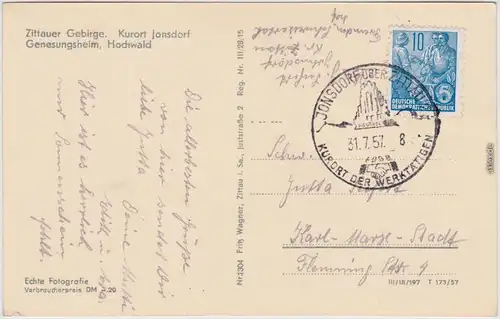 Zittauer Gebirge. Kurort Jonsdorf
Genesungsheim, Hochwald
Die allerbesten Grüße
von hier sendet Dir
liebe Jutta
Deine Mutti
Hier ist es herrlich
nur Sonnenschein
fehlt.
Echte Fotografie
Verbraucherpreis DM -.20
Nr. 3304 Fritz Wagner, Zittau i. Sa., Juststraße 2 Reg. Nr. III/28/15
Jonsdorf
Kr. Zittau
JONSDORF ÜBER ZITTAU
31.7.57. 8
KURORT DER WERKTÄTIGEN
10
DEUTSCHE
DEMOKRATISCHE REPUBLIK
Schw.
Jutta
Karl-Marx-Stadt
Flemming Str. 9
III/18/197 T 173/57